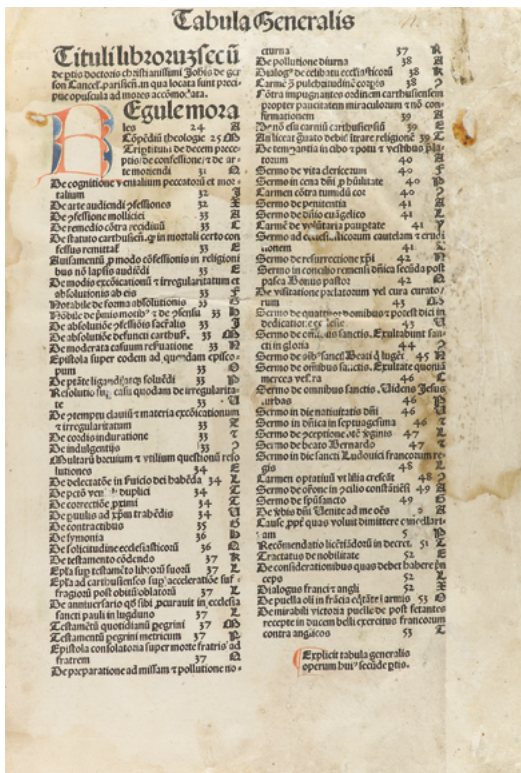 Tabula Generalis
Tituli libroruz secū
de ptis doctoris christianissimi Johis de ger
son Cancel. parisieñ. in qua locata sunt preci
pue opuscula ad mores accōmodata.
Regule mora
les 24 A
Cōpēdiū theologie 25
Triptitus de decem prece-
ptis/de confessione/ɀ de ar-
te moriendi 31
De cognitione venialium peccatorū et mor
talium 32 J
De arte audiendi ꝯfessiones 32 X
De ꝯfessione molliciei 33 A
De remedio cōtra recidiuū 33 C
De statuto carthusieñ. ꝙ in mortali certo con
fessus remittat̄ 33 E
Auisamentū ꝓ modo cōfessionis in religioni
bus nō lapsis audiēdi 33 E
De modis excōicationū ɀ irregularitatum et
absolutionis ab eis 33 F
Notabile de forma absolutionis 33 G
33
De absolutiōe ꝯfessiōis sacr̄alis 33 J
De absolutiōe defuncti carthuſ. 33
De moderata casuum reẜuatione 33 N
Epistola super eodem ad quendam episco-
pum 33 O
De ptāte ligandi atqȝ soluēdi 33 P
Resolutio circa casū quodam de irregularita-
te 33
De ꝯtemptu clauiū ɀ materia excōicationum
ɀ irregularitatum 33 T
De cordis induratione 33
De indulgentijs 33
Multarū breuium ɀ vtilium questionū reso
lutiones 34 E
De delectatōe in ẜuicio dei habēda 34 L
De pctō veniali duplici 34 T
De correctiōe ꝓximi 34 T
De puulis ad xp̄m trahēdis 34
De contractibus 35
De symonia 36
De solicitudine ecclesiasticorū 36
De testamento cōdendo 37 K
Epl̄a sup testamēto libroꝝ suorū 37 L
Epl̄a ad carthusienses sup acceleratiōe suf-
fragiorū post obitū oblatorū 37 L
De anniuersario qd̓ sibi ꝓcurauit in ecclesia
sancti pauli in lugduno 37 L
Testamētū quotidianū pegrini 37
Testamentū pegrini metricum 37
Epistola consolatoria super morte fratris ad
fratrem 37
De preparatione ad missam ɀ pollutione no-
cturna 37
De pollutione diurna 38 A
Dialogꝰ de celibatu ecclesiasticorū 38 K
Carmē ꝓ pulchritudine corpis 38
Cōtra impugnantes ordinem carthusiensem
propter paucitatem miraculorum ɀ nō con-
firmationem 39 A
De nō esu carniū carthusiēsiū 39 E
An liceat grauato debiē ītrare religionē 39
De temperantia in cibo ɀ potu ɀ vestibus pla-
torum 40 A
Sermo de vita clericorum 40 F
Sermo in cena dñi ꝓ hūilitate 40
Carmen cōtra tumidū cor 40
Sermo de penitentia 41 A
Sermo de dñio euāgelico 41
Carmē de volūtaria pauptate 41
Sermo ad ecclesiasticorum cautelam ɀ erudi
tionem 41
Sermo de resurrectione xp̄i 42
Sermo in concilio remensi dñica secūda post
pasca Bonus pastor 42
De visitatione prelatorum vel cura curato-
rum 43
Sermo de quattuor domibus ɀ potest dici in
dedicatione ecclesie 43
Sermo de omnibus sanctis. Exultabunt san-
cti in gloria 44
Sermo de oĩbꝰ sanct. Beati q̇ lugēt 45
Sermo de omnibus sanctis. Exultate quoniā
merces vestra 46 C
Sermo de omnibus sanctis. Uidens Jesus
turbas 46
Sermo in die natiuitatis dñi 46
Sermo in dñica in septuagesima 46
Sermo de ꝯceptione btē ꝟginis 47 L
Sermo de beato Bernardo 47
Sermo in die sancti Ludouici francorum re-
gis 48 L
Carmen optatiuū vt lilia crescāt 48
Sermo de or̄one in ꝯcilio constātiēẜ 49 A
Sermo de spūsancto 49
De ꝟbis dñi Uenite ad me oēs
Cause ꝓpt̄ quas voluit dimittere cancellari-
am
Recōmendatio licētiādorū in decret. 51
Tractatus de nobilitate 52 E
De considerationibus quas debet habere prin
ceps 52 L
Dialogus franci ɀ angli 52 X
De puella oli in frācia eq̇tāte ī armis 53
De mirabili victoria puelle de post fetantes
recepte in ducem belli exercitus francorum
contra anglicos 53
Explicit tabula generalis
operum huiꝰ secūde ptis.